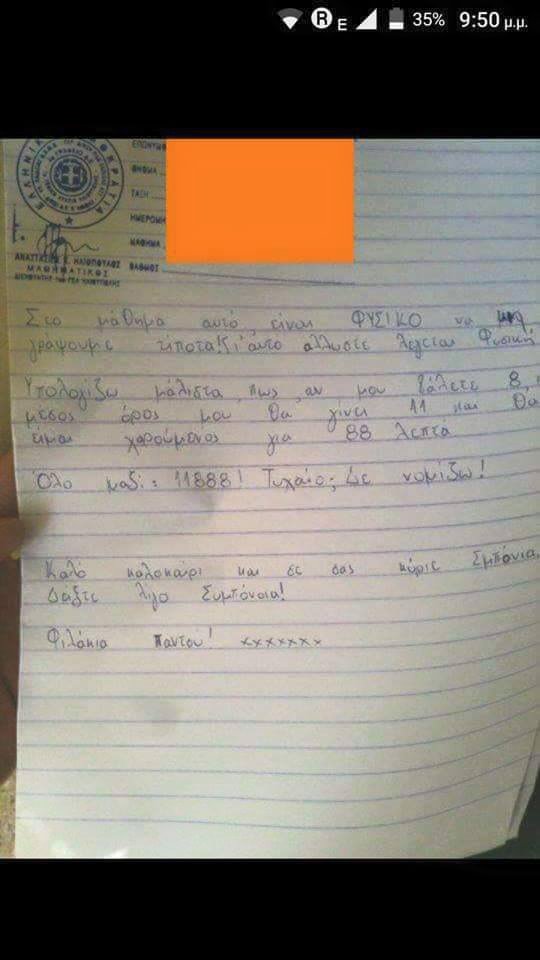 35% 9:50 μ.μ.
ΕΠΩΝΥΜΟ
ΟΝΟΜΑ
ΤΑΞΗ
ΗΜΕΡΟΜΗ
ΜΑΘΗΜΑ
ΒΑΘΜΟΣ
ΑΝΑΣΤΑΣΙΟΣ Κ. ΗΛΙΟΠΟΥΛΟΣ
ΜΑΘΗΜΑΤΙΚΟΣ
ΔΙΕΥΘΥΝΤΗΣ ΓΕΛ ΗΛΙΟΥΠΟΛΗΣ
Στο μάθημα αυτό είναι ΦΥΣΙΚΟ να μη
γράψουμε τίποτα! Γι'αυτό άλλωστε λέγεται Φυσική
Υπολογίζω μάλιστα πως αν μου βάλετε 8,
μέσος όρος μου θα γίνει 11 και θα
είμαι χαρούμενος για 88 λεπτά
Όλο μαζί: 11888! Τυχαίο; Δε νομίζω!
Καλό καλοκαίρι και σε σας κύριε Σμπόνια,
δείξτε λίγο Συμπόνοια!
Φιλάκια παντού! xxxxxxx